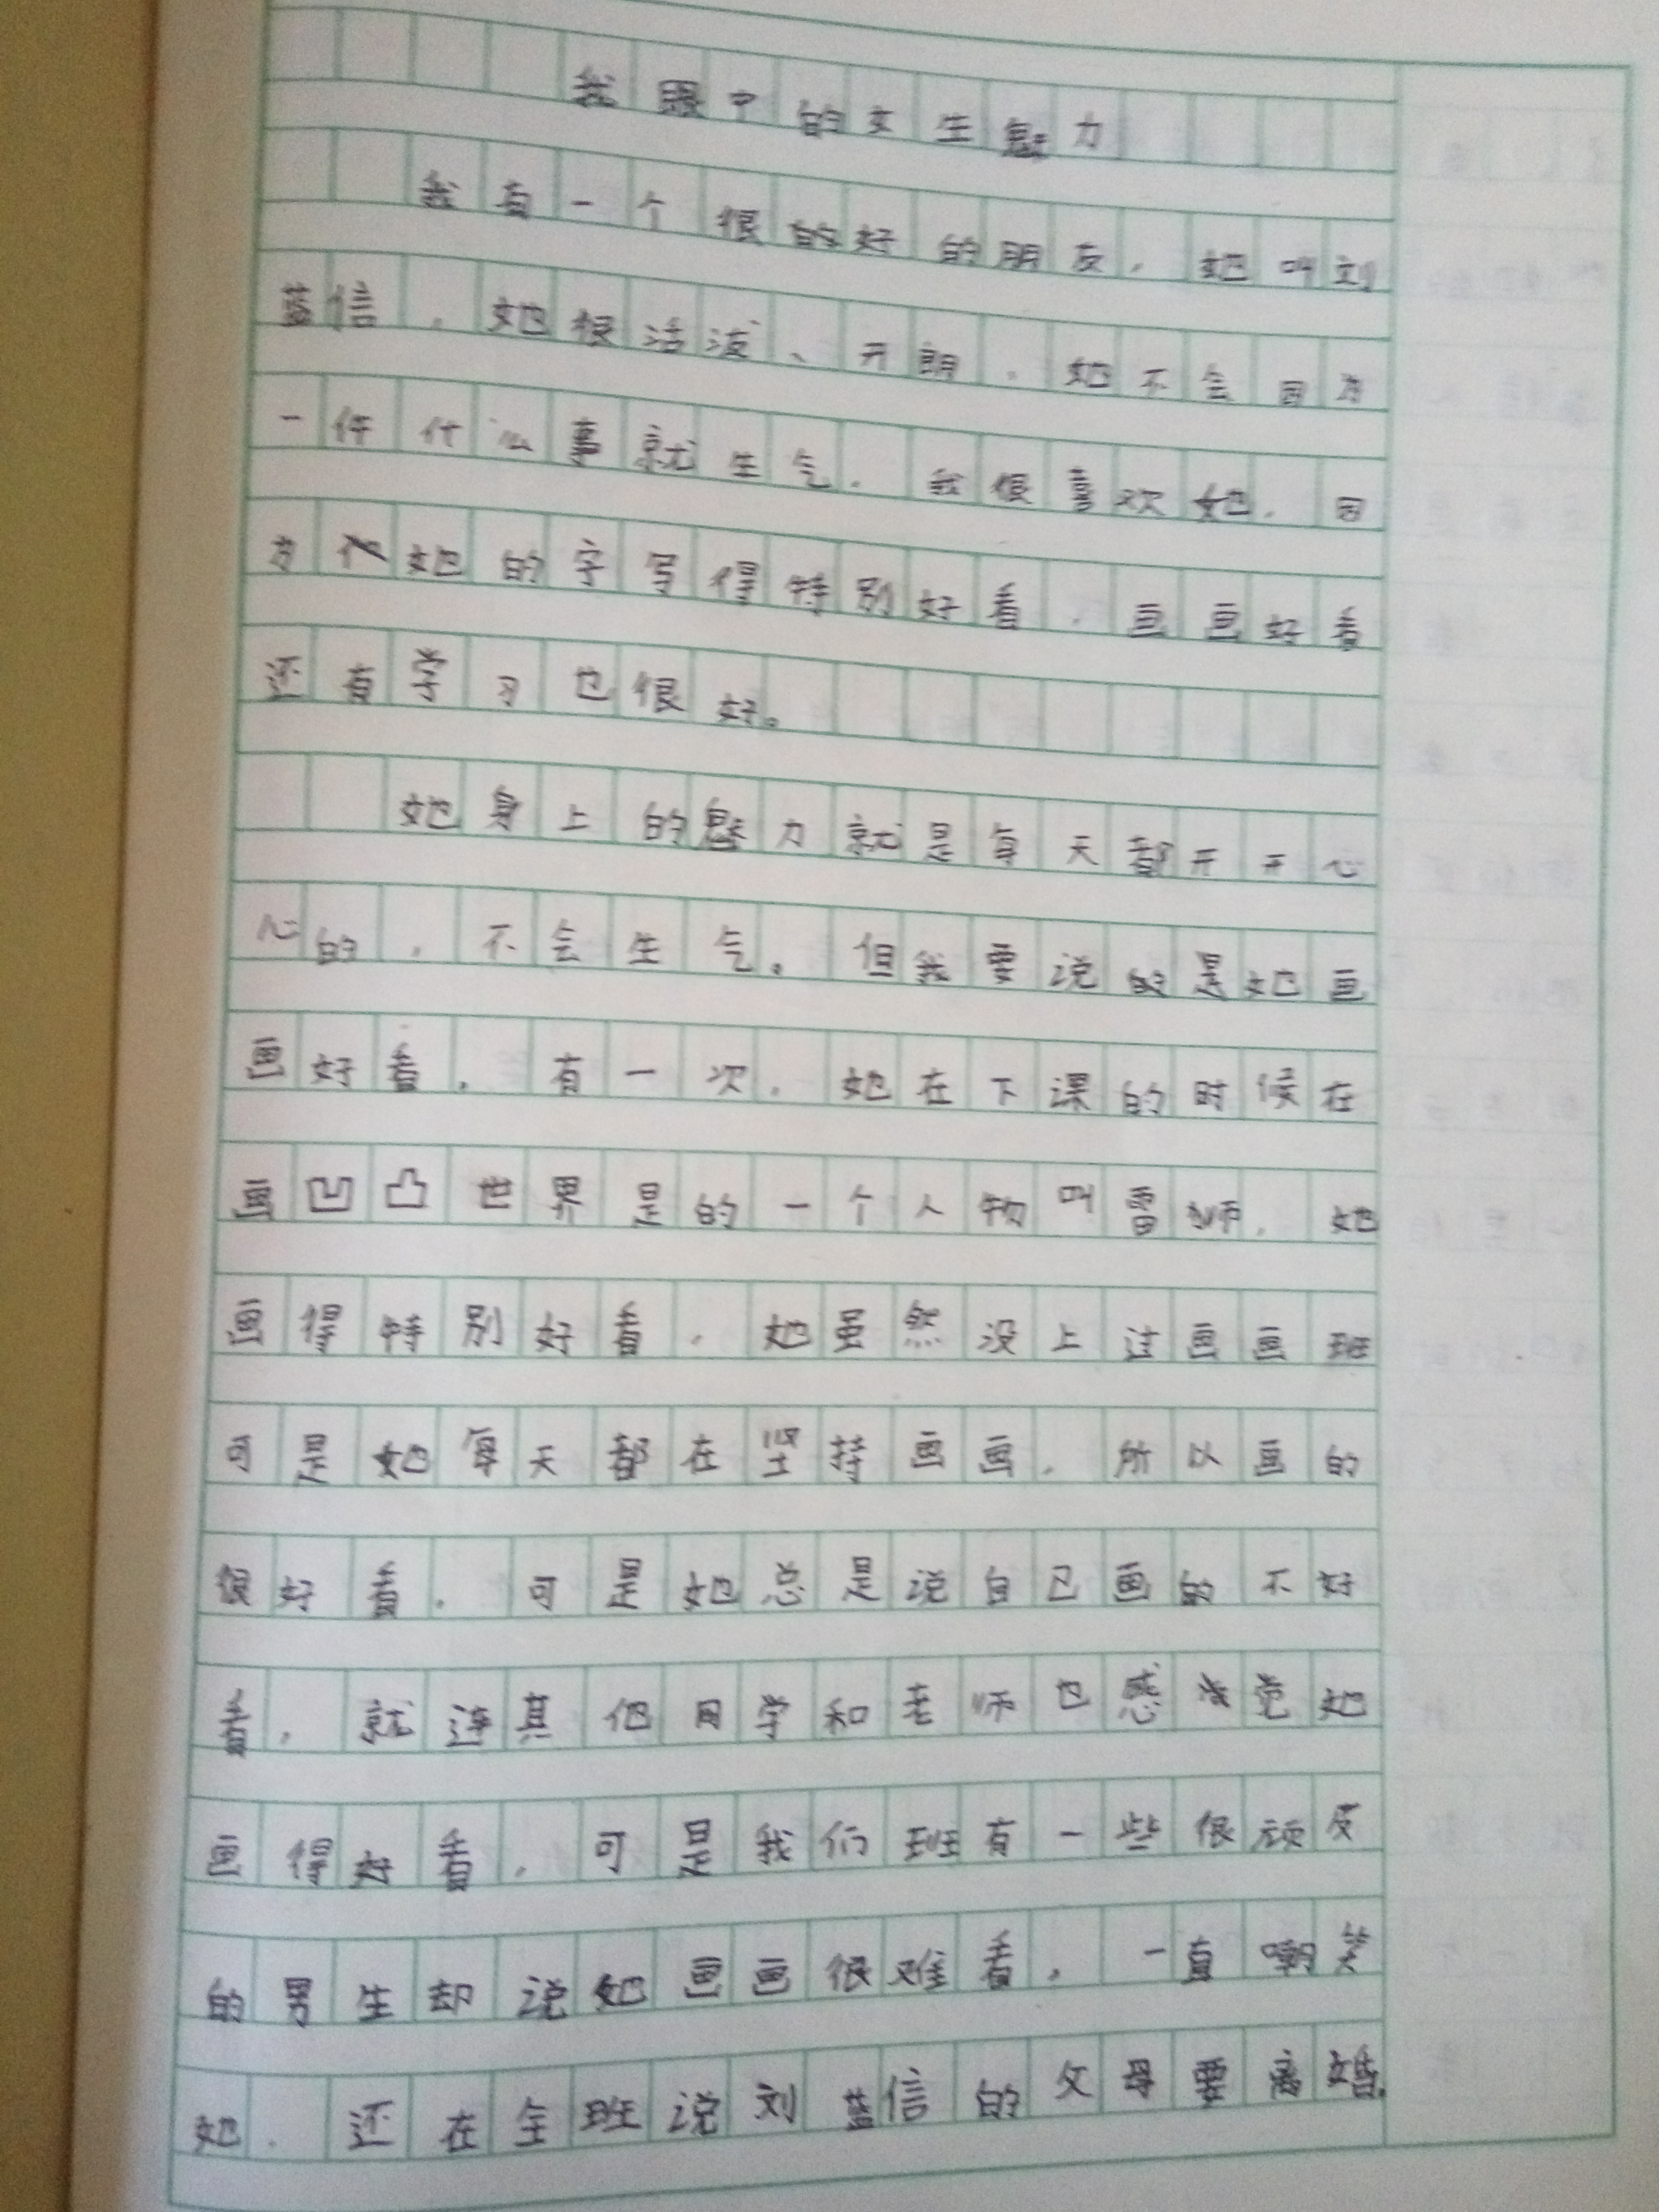 我眼中的女生魅力
我有一个很的好的朋友，她叫刘
蓝信，她很活泼、开朗，她不会因为
一件什么事就生气。我很喜欢她，因
为她的字写得特别好看，画画好看
还有学习也很好。
她身上的魅力就是每天都开开心
心的，不会生气。但我要说的是她画
画好看，有一次，她在下课的时候在
画凹凸世界是的一个人物叫雷狮，她
画得特别好看，她虽然没上过画画班
可是她每天都在坚持画画，所以画的
很好看，可是她总是说自己画的不好
看，就连其他同学和老师也感觉她
画得好看，可是我们班有一些很顽皮
的男生却说她画画很难看，一直嘲笑
她，还在全班说刘蓝信的父母要离婚。